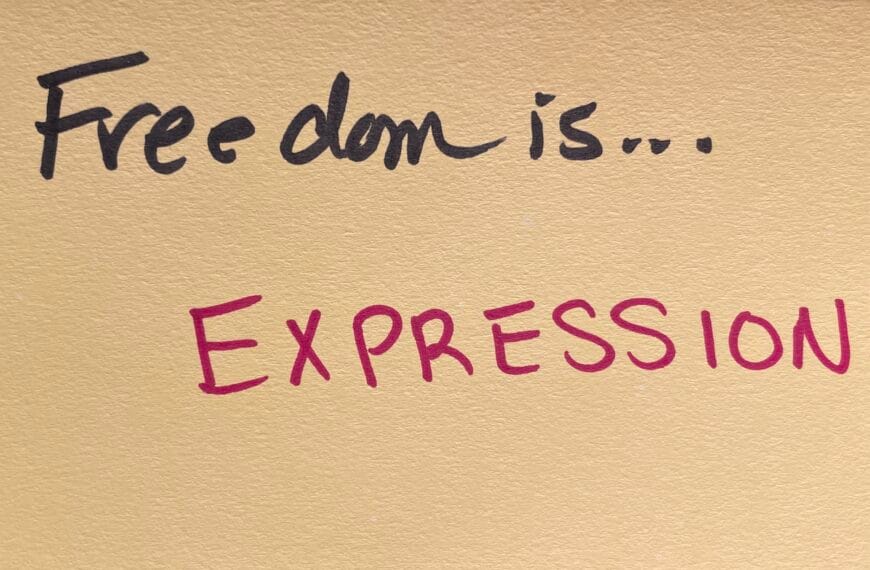 Freedom is...
EXPRESSION